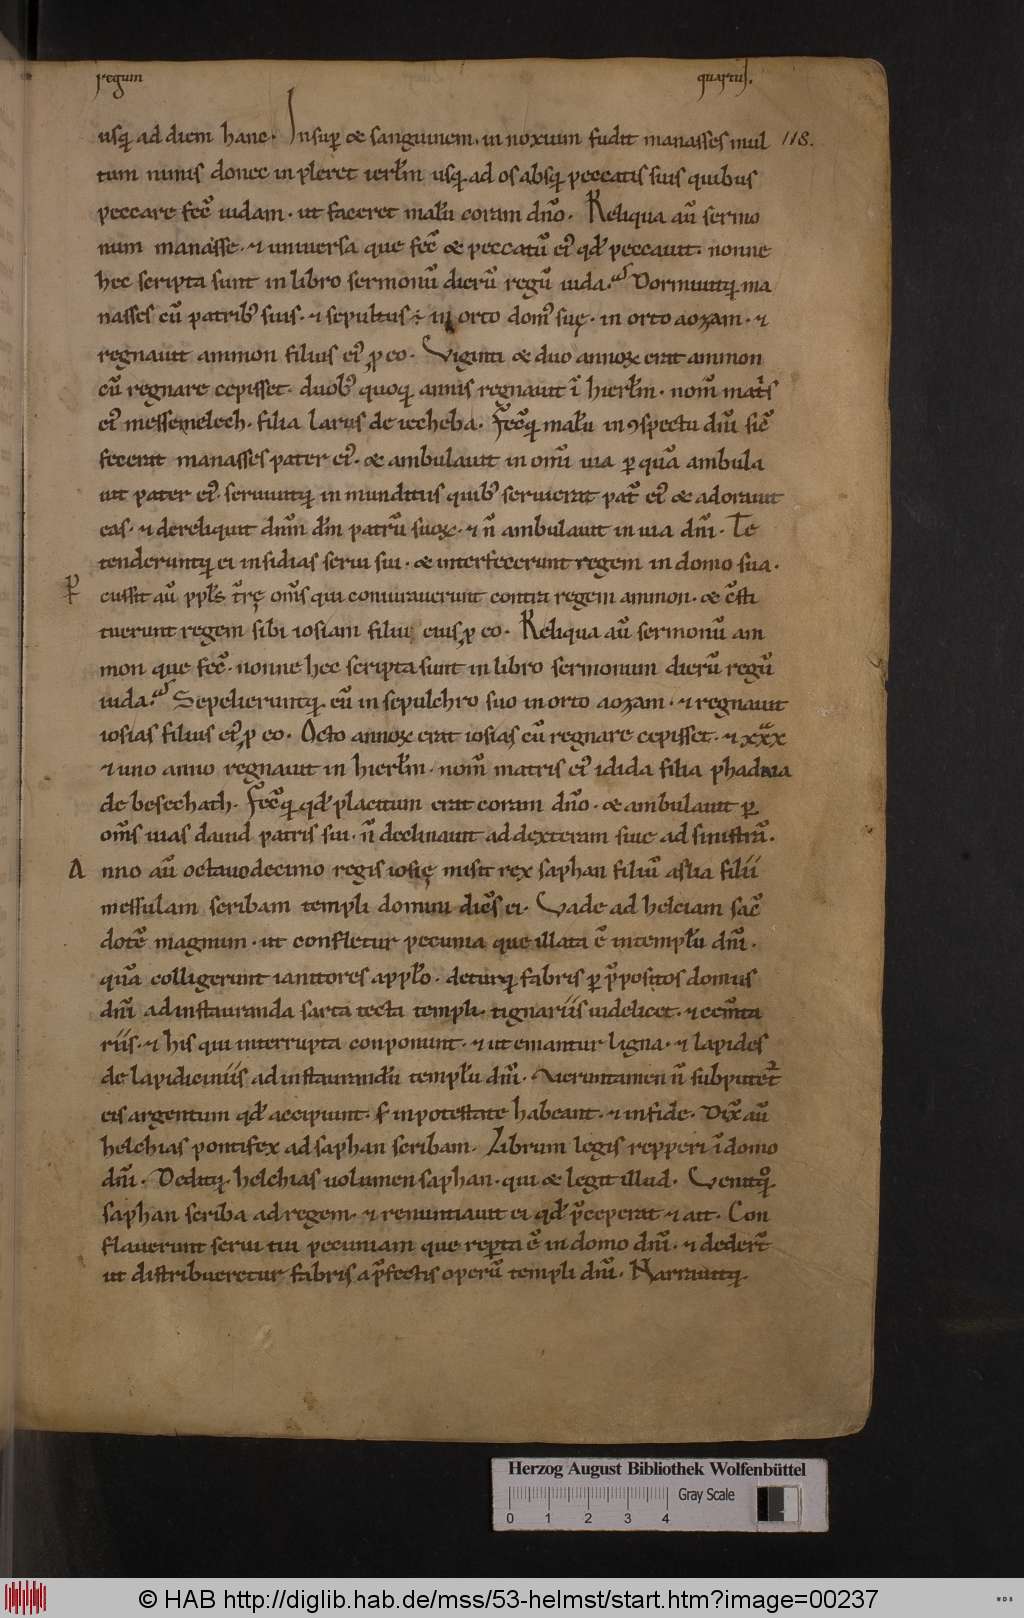 regum quartus.
usq; ad diem hanc. Insup̄ & sanguinem. innoxium fudit manasses mul 118.
tum nimis donec inpleret ierlm̄ usq; ad os absq; peccatis suis quibus
peccare fec̄ iudam. ut faceret malū coram dn̄o. Reliqua aū sermo
num manasse. & uniuersa que fec̄ & peccatū ei' qd̄ peccauit. nonne
hec scripta sunt in libro sermonū dierū regū iuda. Dormiuitq; ma
nasses cū patrib; suis. & sepultus ÷ in orto dom' suę. in orto aozam. &
regnauit ammon filius ei' p eo. Viginti & duo annoꝝ erat ammon
cū regnare cepisset. duob; quoq; annis regnauit ī hierlm̄. nom̄ mat̄s
ei' messemelech. filia larus de iecheba. Fec̄q; malū in ꝯspectu dn̄i sic̄
fecerat manasses pater ei'. & ambulauit in om̄i uia p̱ quā ambula
uit pater ei'. seruiuitq; inmunditiis quib; seruierat pat̄ ei' & adorauit
eas. & dereliquit dn̄m dm̄ patrū suoꝝ. & n̄ ambulauit in uia dn̄i. Te
tenderuntq; ei insidias serui sui. & interfecerunt regem in domo sua.
P̱
cussit aū ppl̄s t̄rę om̄s qui coniurauerunt contra regem ammon. & c̄sti
tuerunt regem sibi iosiam filiū eius p eo. Reliqua aū sermonū am
mon que fec̄. nonne hec scripta sunt in libro sermonum dierū regū
iuda. Sepelieruntq; eū in sepulchro suo in orto aozam. & regnauit
iosias filius ei' p eo. Octo annoꝝ erat iosias cū regnare cepisset. & xxx
& uno anno regnauit in hierlm̄. nom̄ matris ei' idida filia phadaia
de besechath. Fec̄q; qd̄ placitum erat coram dn̄o. & ambulauit p̱
om̄s uias dauid patris sui. n̄ declinauit ad dexteram siue ad sinistrā.
A nno aū octauodecimo regis iosię misit rex saphan filiū aslia filii
messulam scribam templi domini dic̄s ei. Vade ad helciam sac̄
dotē magnum. ut confletur pecunia que illata ē in templū dn̄i.
quā colligerunt ianitores a pplo. deturq; fabris p̱ p̄positos domus
dn̄i ad instauranda sarta tecta templi. tignariis uidelicet. & cem̄ta
riis. & his qui interrupta conponunt. & ut emantur ligna. & lapides
de lapidiciniis ad instaurandū templū dn̄i. Veruntamen n̄ subputet̄
eis argentum qd̄ accipiunt. s; in potestate habeant. & in fide. Dix̄ aū
helchias pontifex ad saphan scribam. Librum legis repperi ī domo
dn̄i. Deditq; helchias uolumen saphan. qui & legit illud. Venitq;
saphan scriba ad regem. & renuntiauit ei qd̄ p̄ceperat & ait. Con
flauerunt serui tui pecuniam que rep̱ta ē in domo dn̄i. & deder̄t
ut distribueretur fabris a p̄fectis operū templi dn̄i. Narrauitq;
Herzog August Bibliothek Wolfenbüttel
Gray Scale
0 1 2 3 4
© HAB http://diglib.hab.de/mss/53-helmst/start.htm?image=00237